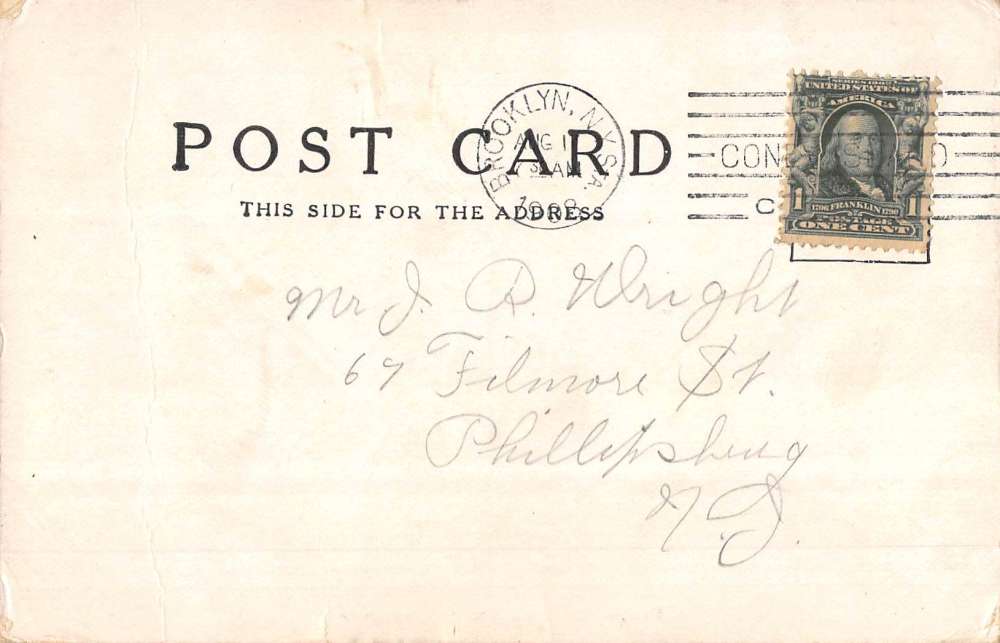 POST CARD
THIS SIDE FOR THE ADDRESS
BROOKLYN, N.Y. STA.
AUG 1
AM
SERIES 1902
UNITED STATES OF
AMERICA
1706 FRANKLIN 1790
1 1
POSTAGE
ONE CENT
Mr J. R. Wright
67 Filmore St.
Phillipsburg
N.J.